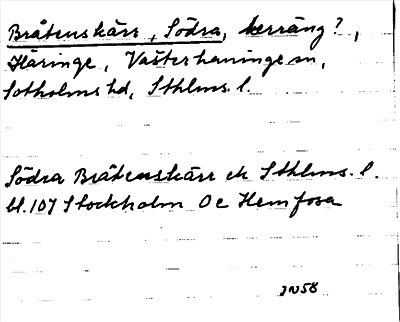 Bråtenskärr, Södra, kerräng?,
Häringe, Västerhaninge sn,
Sotholms hd, Sthlms. l.
Södra Bråtenskärr ek Sthlms. l.
bl. 107 Stockholm Oc Hemfosa
JN58